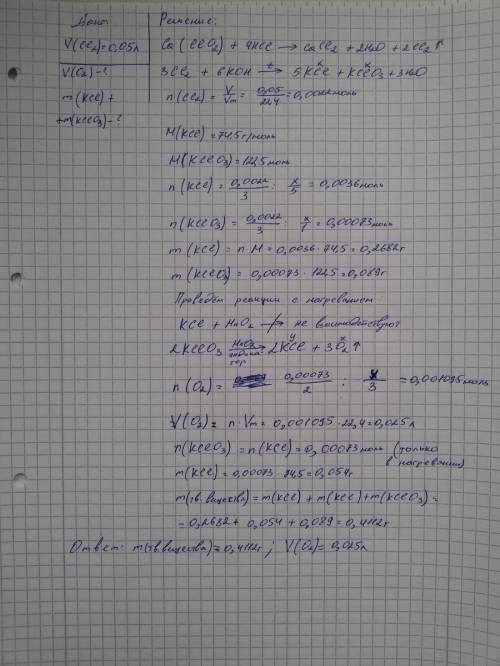 Дано:
Решение:
V(Cl₂)=0,05л
V(O₂)-?
m(KCl)+
+m(KClO₃)-?
Ca(ClO₂) + 4HCl → CaCl₂ + 2H₂O + 2Cl₂↑
3Cl₂ + 6KOH →t 5KCl + KClO₃ + 3H₂O
n(Cl₂) = V/Vm = 0,05/22,4 = 0,0022моль
M(KCl) = 74,5 г/моль
M(KClO₃) = 122,5 моль
n(KCl) = 0,0022/3 : x/5 = 0,0036моль
n(KClO₃) = 0,0022/3 : x/1 = 0,00073моль
m(KCl) = n·M = 0,0036·74,5 = 0,2682г
m(KClO₃) = 0,00073·122,5 = 0,089г
Проведём реакции с нагреванием:
KCl + MnO₂ ↛ не взаимодействуют
2KClO₃ MnO₂→ 2KCl + 3O₂↑
n(O₂) = 0,00073/2 : x/3 = 0,001095моль
V(O₂) = n·Vm = 0,001095·22,4 = 0,025л
n(KClO₃) = n(KCl) = 0,00073моль (только в нагревании)
m(KCl) = 0,00073·74,5 = 0,054г
m(тв.вещества) = m(KCl) + m(KCl) + m(KClO₃) =
= 0,2682 + 0,054 + 0,089 = 0,4112г
Ответ: m(тв.вещества) = 0,4112г ; V(O₂) = 0,025л